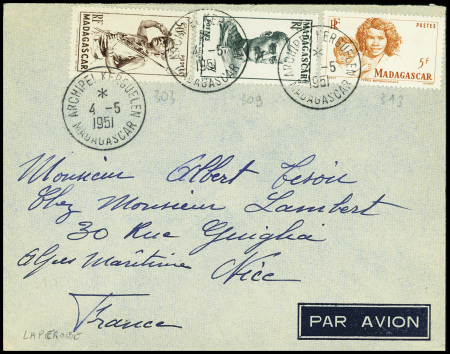 RF
MADAGASCAR
RF
MADAGASCAR
RF
POSTES
5F
MADAGASCAR
ARCHIPEL KERGUELEN
*
4 -5
1951
MADAGASCAR
303
309
313
Monsieur Albert
Chez Monsieur Lambert
30 Rue Guiglia
Alpes Maritime Nice
France
PAR AVION